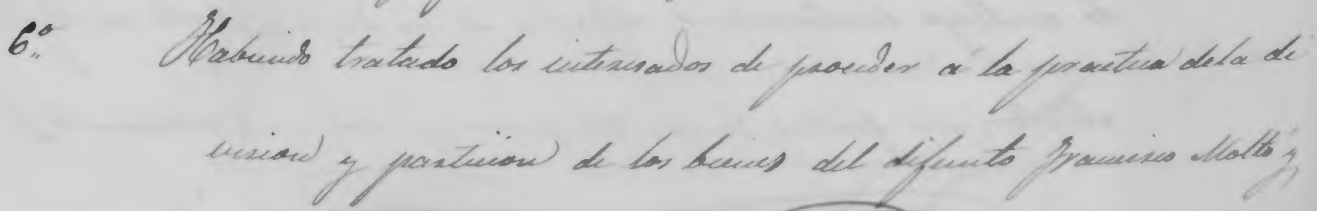 6.º Habiendo tratado los interesados de proceder á la practica dela di
vision y particion de los bienes del difunto Francisco Moltó y